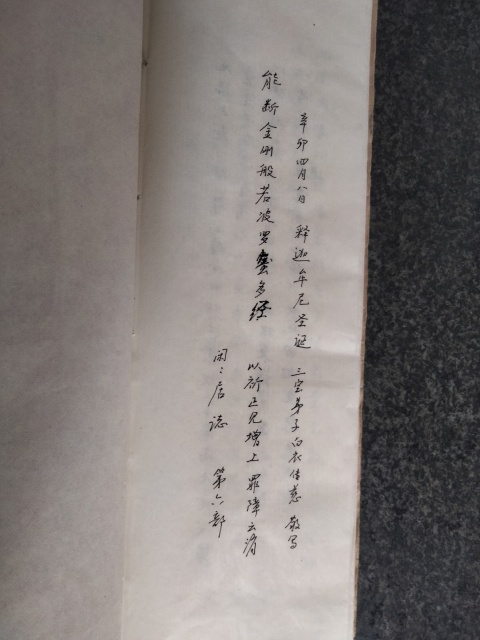 辛卯四月八日 释迦牟尼圣诞 三宝弟子白衣传慧 敬写
能断金刚般若波罗蜜多经 以祈正见增上 罪障云消
闲〻居誌 第六部